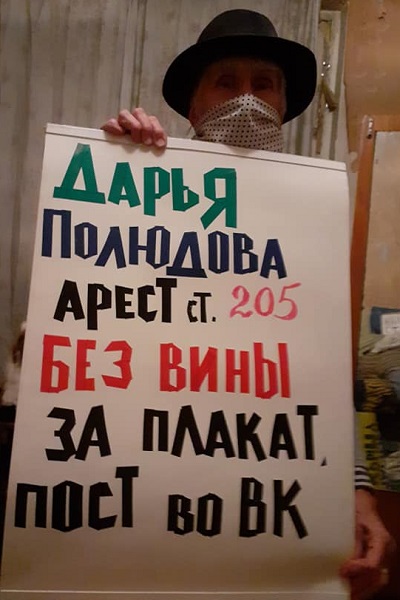 ДАРЬЯ
ПОЛЮДОВА
АРЕСТ СТ. 205
БЕЗ ВИНЫ
ЗА ПЛАКАТ,
ПОСТ ВО ВК